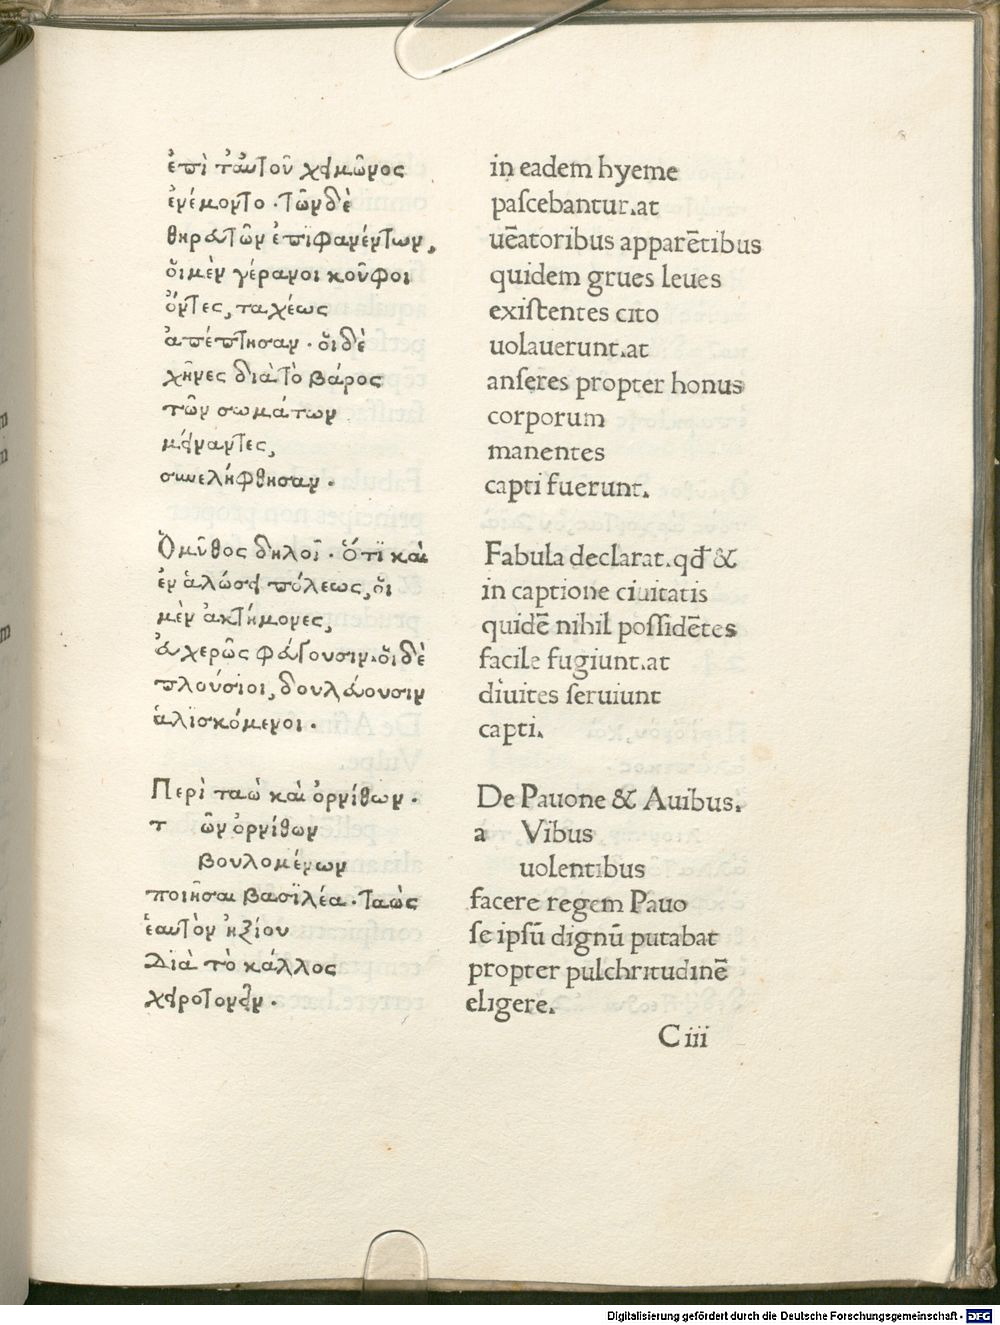 ἐπὶ ταυτοῦ χειμῶνος
ἐνέμοντο. τῶν δὲ
θηρατῶν ἐπιφανέντων,
οἱ μὲν γέρανοι κοῦφοι
ὄντες, ταχέως
ἀπέπτησαν. οἱ δὲ
χῆνες διὰ τὸ βάρος
τῶν σωμάτων
μείναντες,
συνελήφθησαν.
Ὁ μῦθος δηλοῖ. ὅτι καὶ
ἐν ἁλώσει πόλεως, οἱ
μὲν ἀκτήμονες,
εὐχερῶς φεύγουσιν. οἱ δὲ
πλούσιοι, δουλεύουσιν
ἁλισκόμενοι.
Περὶ ταὼ καὶ ὀρνίθων.
τ ῶν ὀρνίθων
βουλομένων
ποιῆσαι βασιλέα. ταὼς
ἑαυτὸν ἠξίου
διὰ τὸ κάλλος
χειροτονεῖν.
in eadem hyeme
paſcebantur.at
uēatoribus apparētibus
quidem grues leues
exiſtentes cito
uolauerunt.at
anſeres propter honus
corporum
manentes
capti fuerunt.
Fabula declarat.qđ &
in captione ciuitatis
quidē nihil poſſidētes
facile fugiunt.at
diuites ſeruiunt
capti.
De Pauone & Auibus.
a Vibus
uolentibus
facere regem Pauo
ſe ipſū dignū putabat
propter pulchritudinē
eligere.
C iii
Digitalisierung gefördert durch die Deutsche Forschungsgemeinschaft - DFG